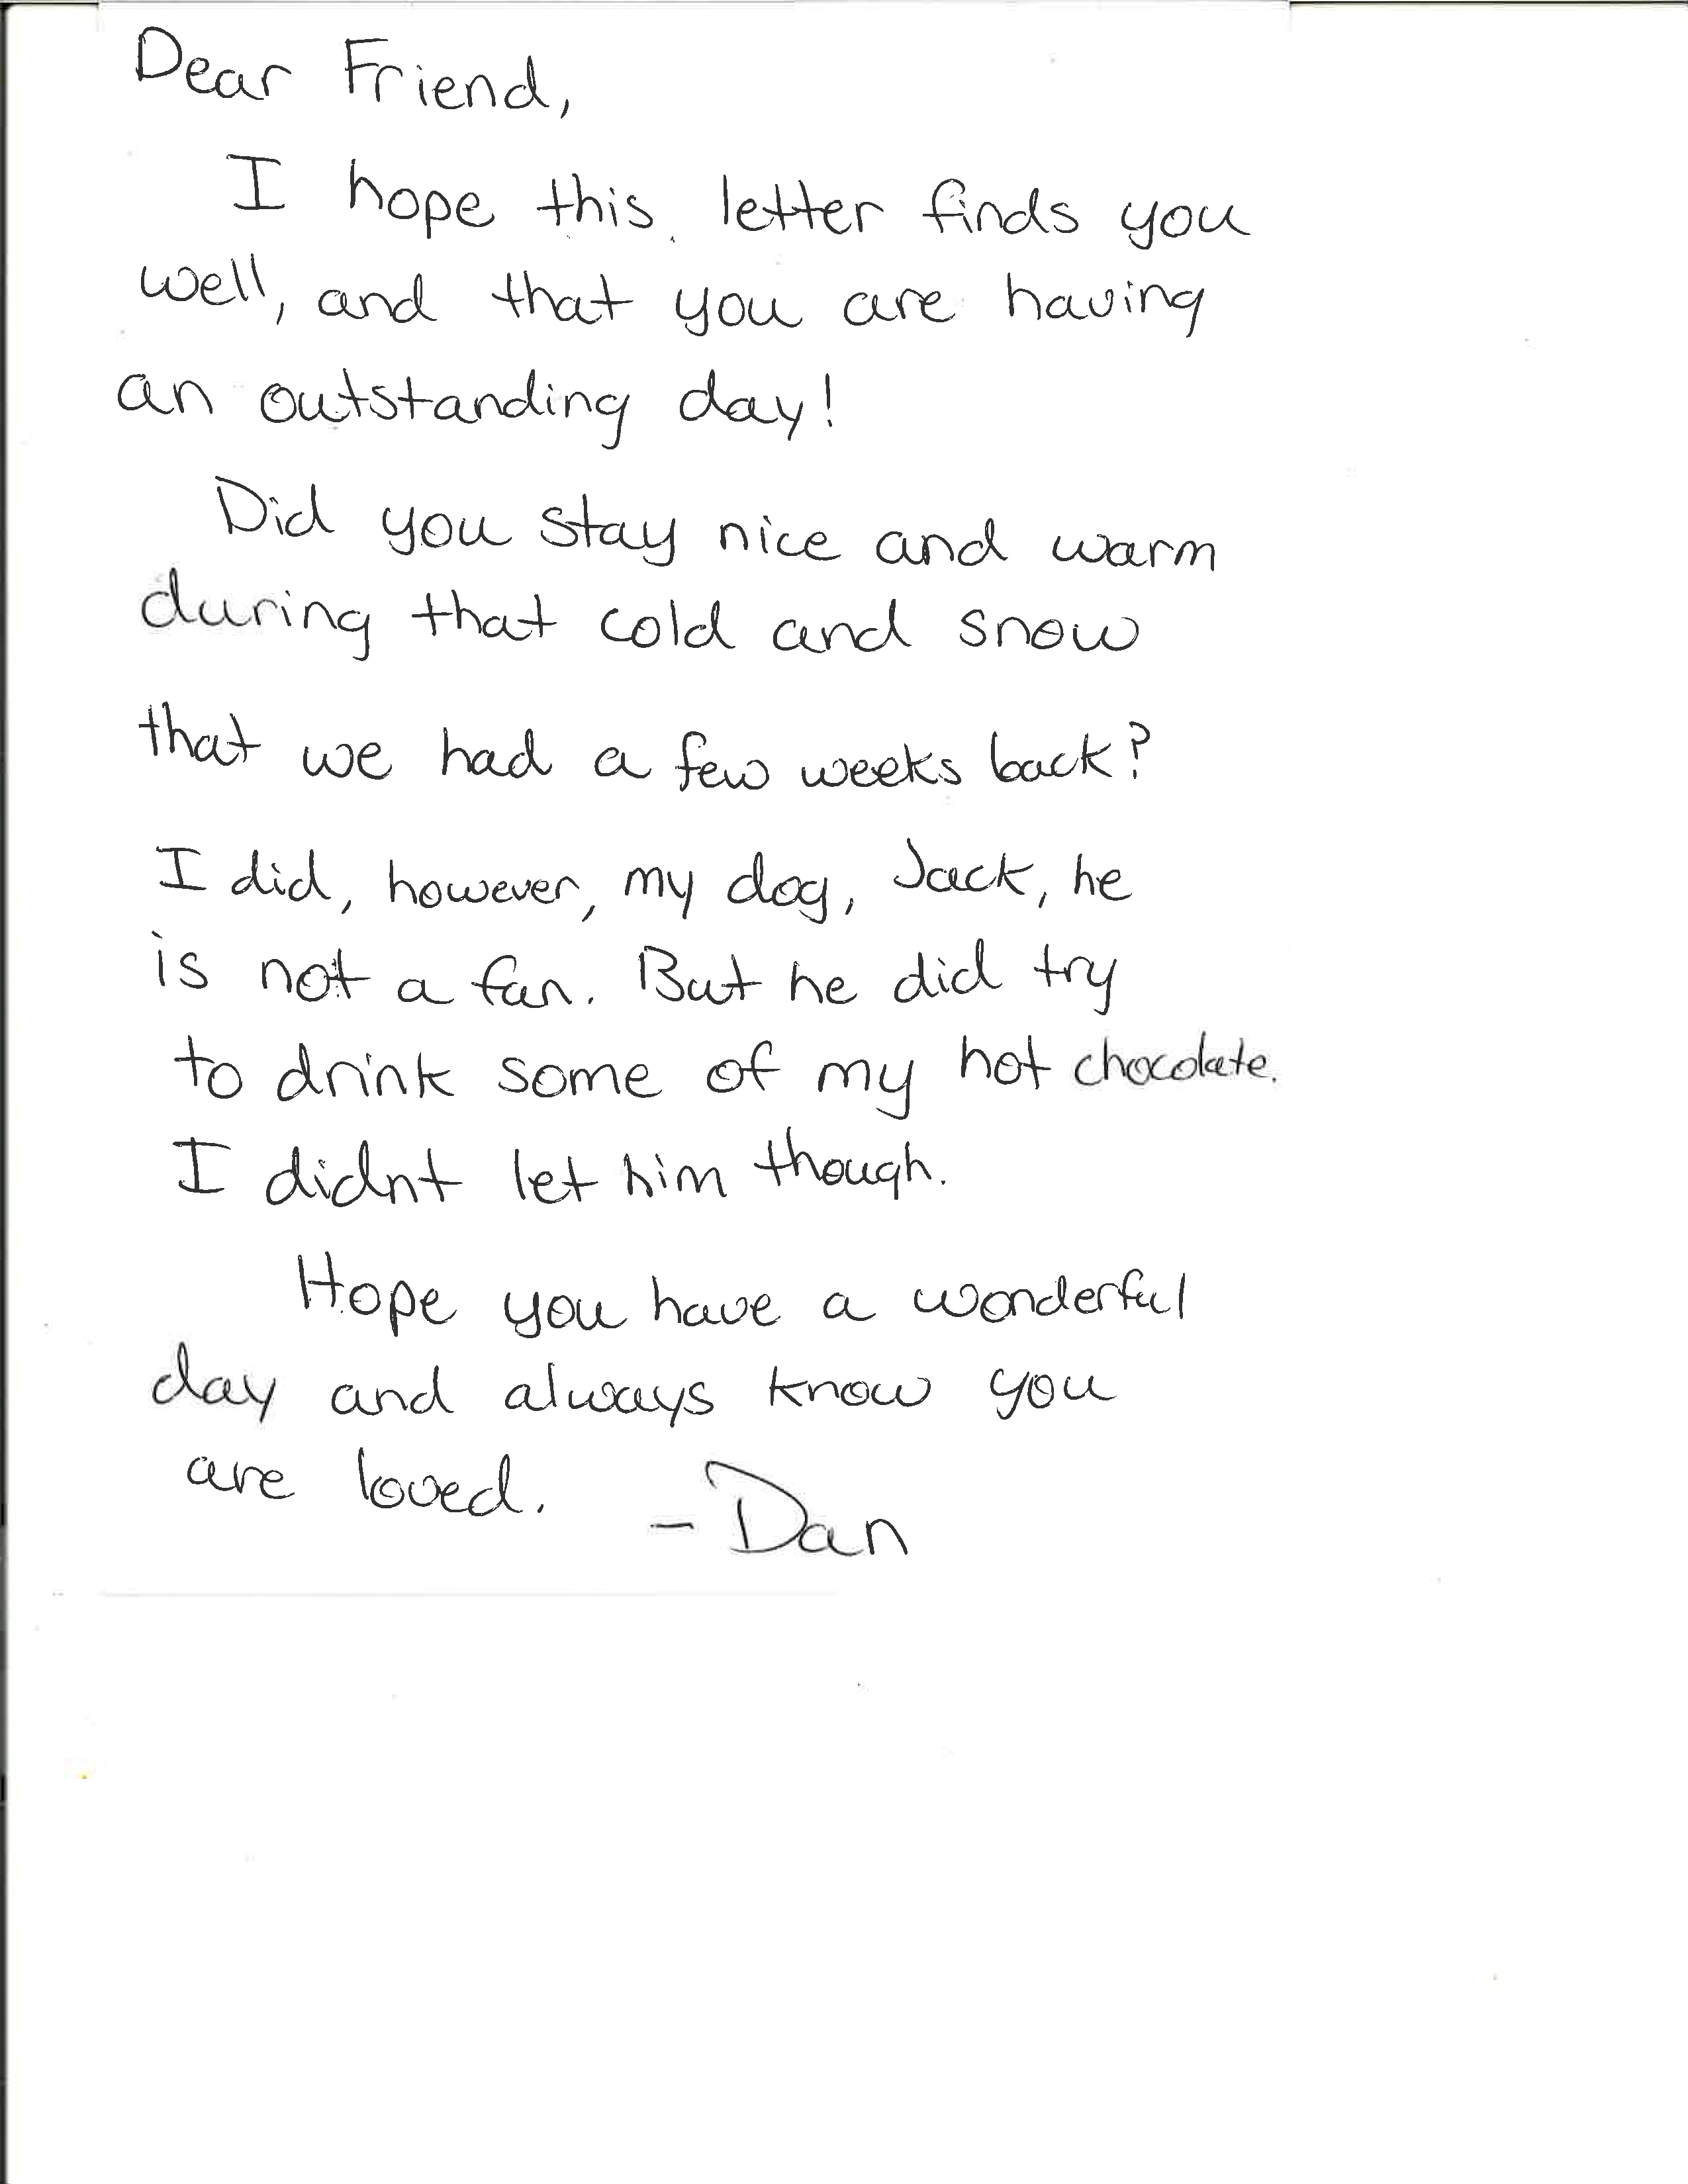 Dear Friend,
I hope this letter finds you
well, and that you are having
an outstanding day!
Did you stay nice and warm
during that cold and snow
that we had a few weeks back?
I did, however, my dog, Jack, he
is not a fan. But he did try
to drink some of my hot chocolate.
I didnt let him though.
Hope you have a wonderful
day and always know you
are loved.
- Dan